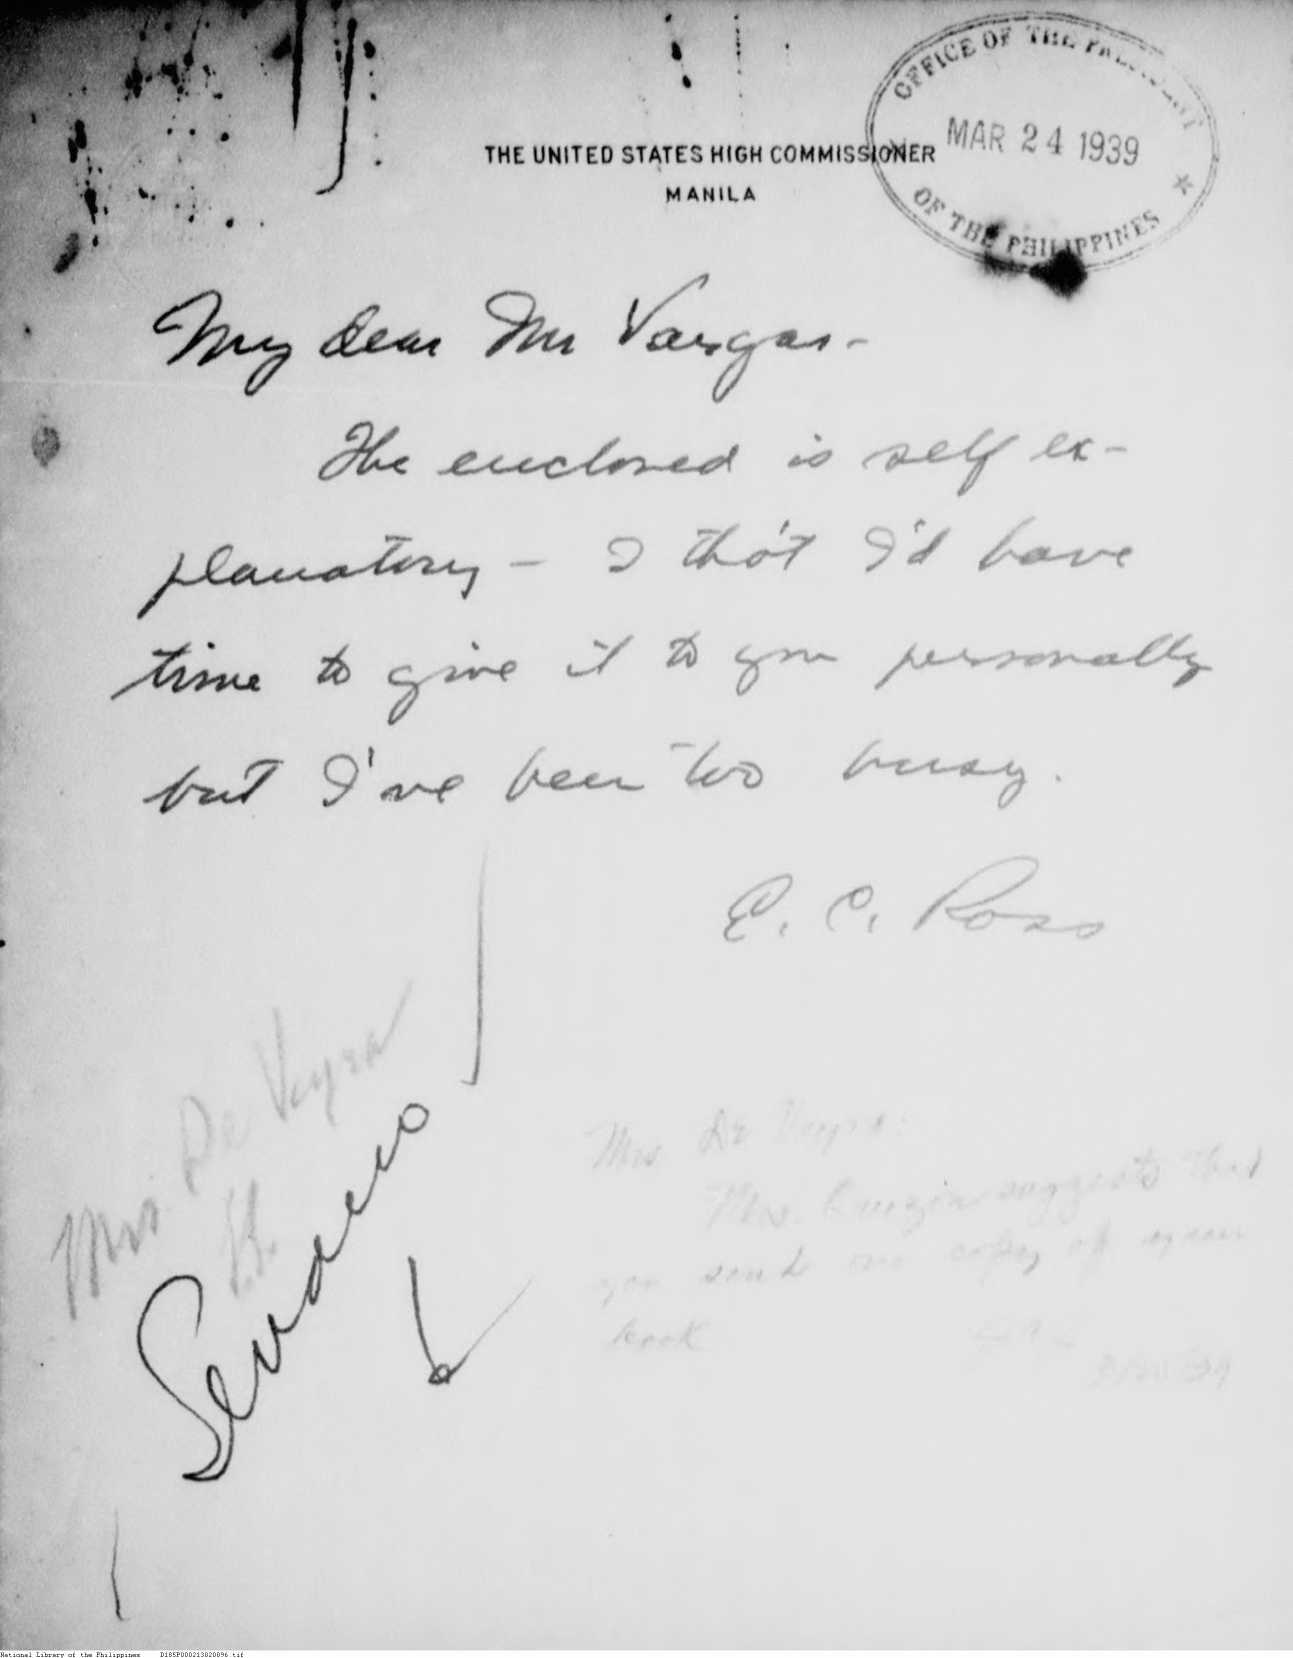 OFFICE OF THE PRESIDENT
MAR 24 1939
OF THE PHILIPPINES
THE UNITED STATES HIGH COMMISSIONER
MANILA
My dear Mr Vargas-
The enclosed is self ex-
planatory - I tho't I'd have
time to give it to you personally
but I've been too busy.
E. C. Ross
Mrs. De Veyra
Mrs. De Veyra:
Mrs. suggests that
you send one copy of your
book
National Library of the Philippines D185P000213020096.tif